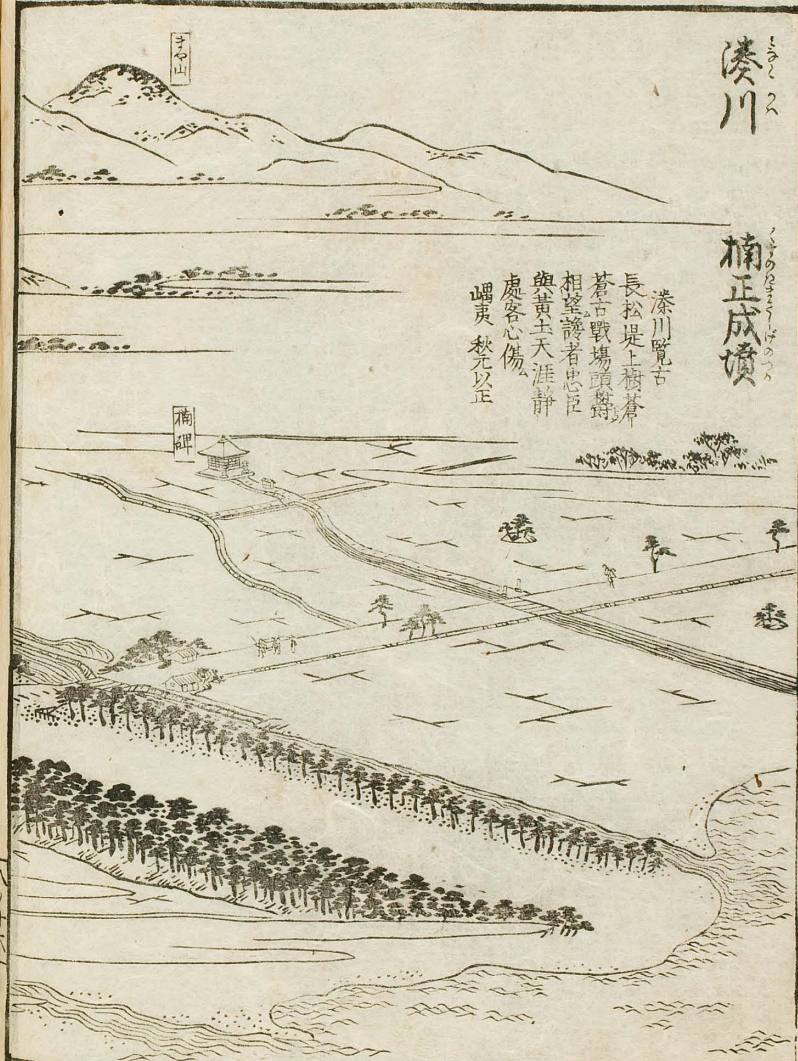 湊川
みなとかは
楠正成墳
くすのきまさしげのつか
湊川覧古
長松堤上樹蒼
蒼古戦場頭欝
相望讒者忠臣
與黄土天涯静
處客心傷
嵎夷 秋元以正
まや山
楠碑